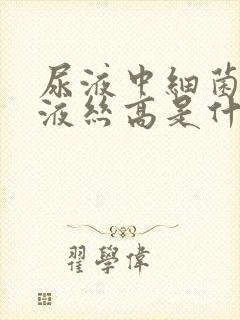 尿液中細菌
液絲高是什
翟學偉